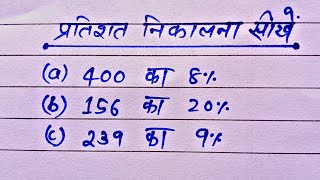 प्रतिशत निकालना सीखें
(a) 400 का 8%
(b) 156 का 20%
(c) 239 का 9%